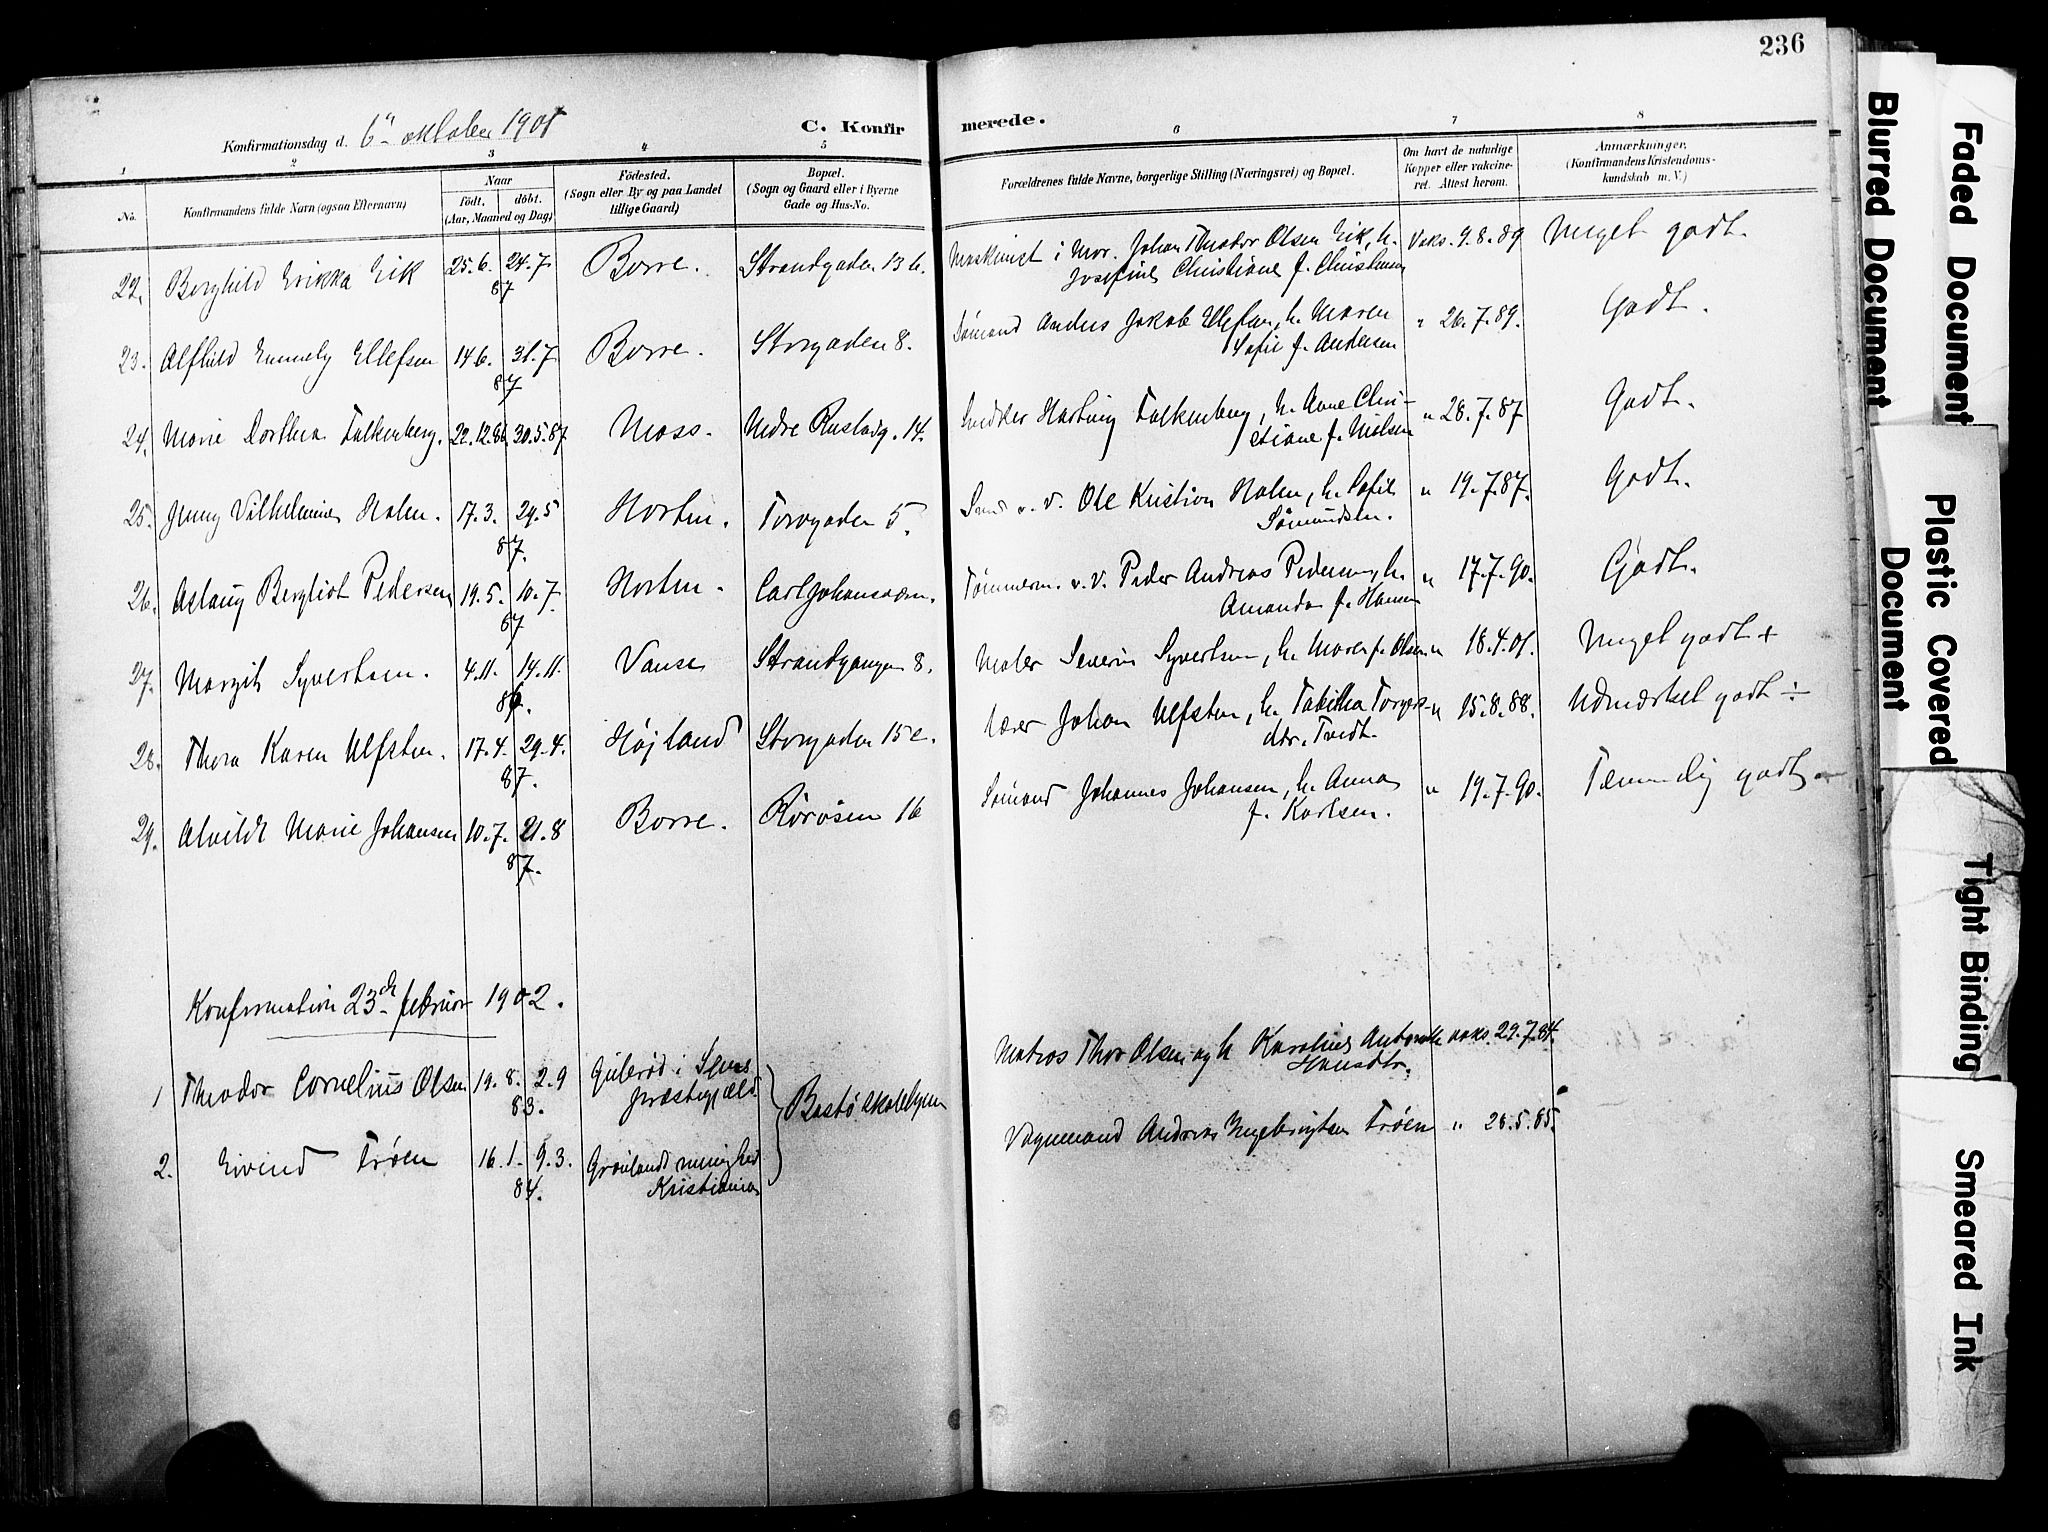 236
Konfirmationsdag d. 6te oktober 1901
C. Konfir merede.
1 2 3 4 5 6 7 8
No. Konfirmandens fulde Navn (ogsaa Efternavn)
Naar
födt. döbt.
(Aar, Maaned og Dag)
Födested.
(Sogn eller By og paa Landet
tillige Gaard)
Bopæl.
(Sogn og Gaard eller i Byerne
Gade og Hus-No.
Forældrenes fulde Navne, borgerlige Stilling (Næringsvei) og Bopæl.
Om havt de naturlige
Kopper eller vakcine-
ret. Attest herom.
Anmærkninger.
(Konfirmandens Kristendoms-
kundskab m. V.)
22. Borghild Erikka Eik 25.6. 24.7. 87 Borre. Strandgaden 13 b. Maskinist i Mar. Johan Theodor Olsen Eik, h. Vaks. 9.8.89 Meget godt.
Josefine Christiane f. Christensen
23. Alfhild Emmely Ellefsen 14.6. 31.7 87 Borre. Storgaden 8. Sömand Anders Jakob Ellefsen, h. Maren " 26.7.89. Godt.
Sofie f. Andersen
24. Marie Dorthea Falkenberg. 22.12.86 30.5.87 Moss. Nedre Rustadg. 14. Snedker Hartvig Falkenberg, h. Anne Chri- " 28.7.87 Godt.
stiane f. Nielsen
25. Jenny Vilhelmine Holm. 17.3. 29.5 87. Horten. Torvgaden 5. v. V. Ole Kristian Holm, h. Sofie " 19.7.87. Godt.
Sömundsen.
26. Aslaug Bergliot Pedersen 19.5. 10.7. 87 Horten. Carljohansværn. Tömmerm. v. V. Peder Andreas Pedersen, h. " 17.7.90. Godt.
Amanda f. Hansen
27. Margit Syvertsen. 4.11. 14.11. 86. Vanse Strandgangen 8. Maler Severin Syvertsen, h. Maren f. Olsen " 18.4.01. Meget godt +
28. Thora Karen Ulfsten. 17.4. 29.4. 87. Højland Storgaden 15 c. Lærer Johan Ulfsten, h. Tabitha Torgers- " 15.8.88. Udmærket godt ÷
dtr. Tvedt.
29. Alvilde Marie Johansen 10.7. 21.8 87. Borre. Rørosen 16 Sömand Johannes Johansen, h. Anna " 19.7.90. Temmelig godt
f. Karlsen.
Konfirmation 23de februar 1902.
1 Theodor Cornelius Olsen 19.8. 2.9 83. i Sems
præstegjæld Bastö skolehjem Matros Thor Olsen og h Karoline Hansdtr. vaks. 29.7.84.
2. Eivind Trøen 16.1. 9.3. 84. Grønlands menighed
Kristiania Vognmand Andreas Engebrigtsen Trøen " 26.5.85.
Faded Document
Blurred Document
Plastic Covered
Document
Tight Binding
Smeared Ink